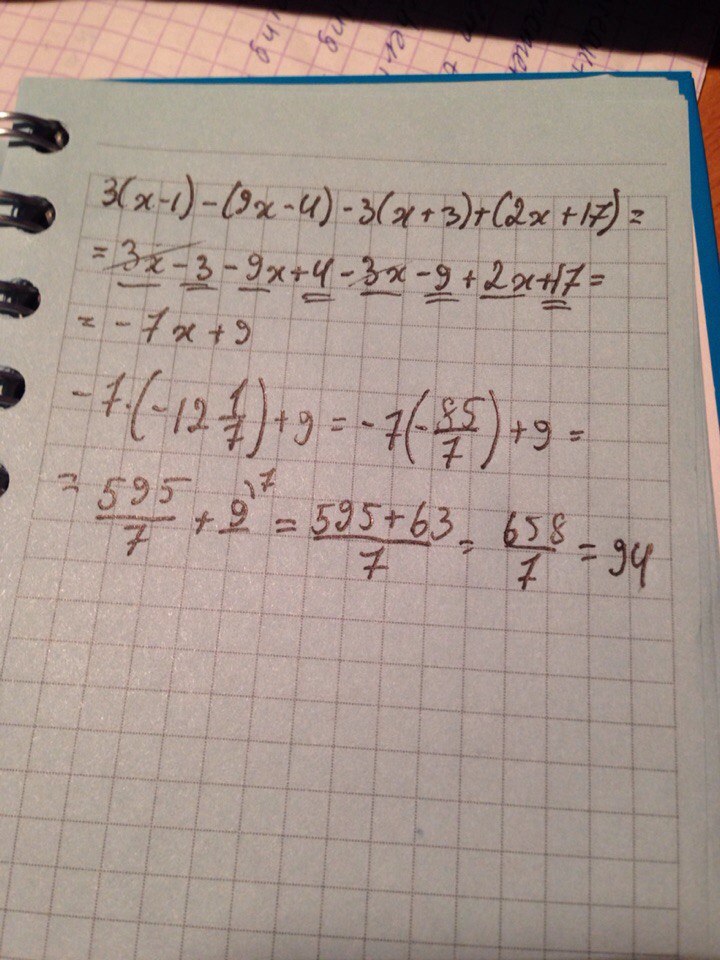 3(x-1)-(9x-4)-3(x+3)+(2x+17)=
=3x-3-9x+4-3x-9+2x+17=
=-7x+9
-7·(-12 1/7)+9=-7(-85/7)+9=
=595/7+9^7=595+63/7=658/7=94